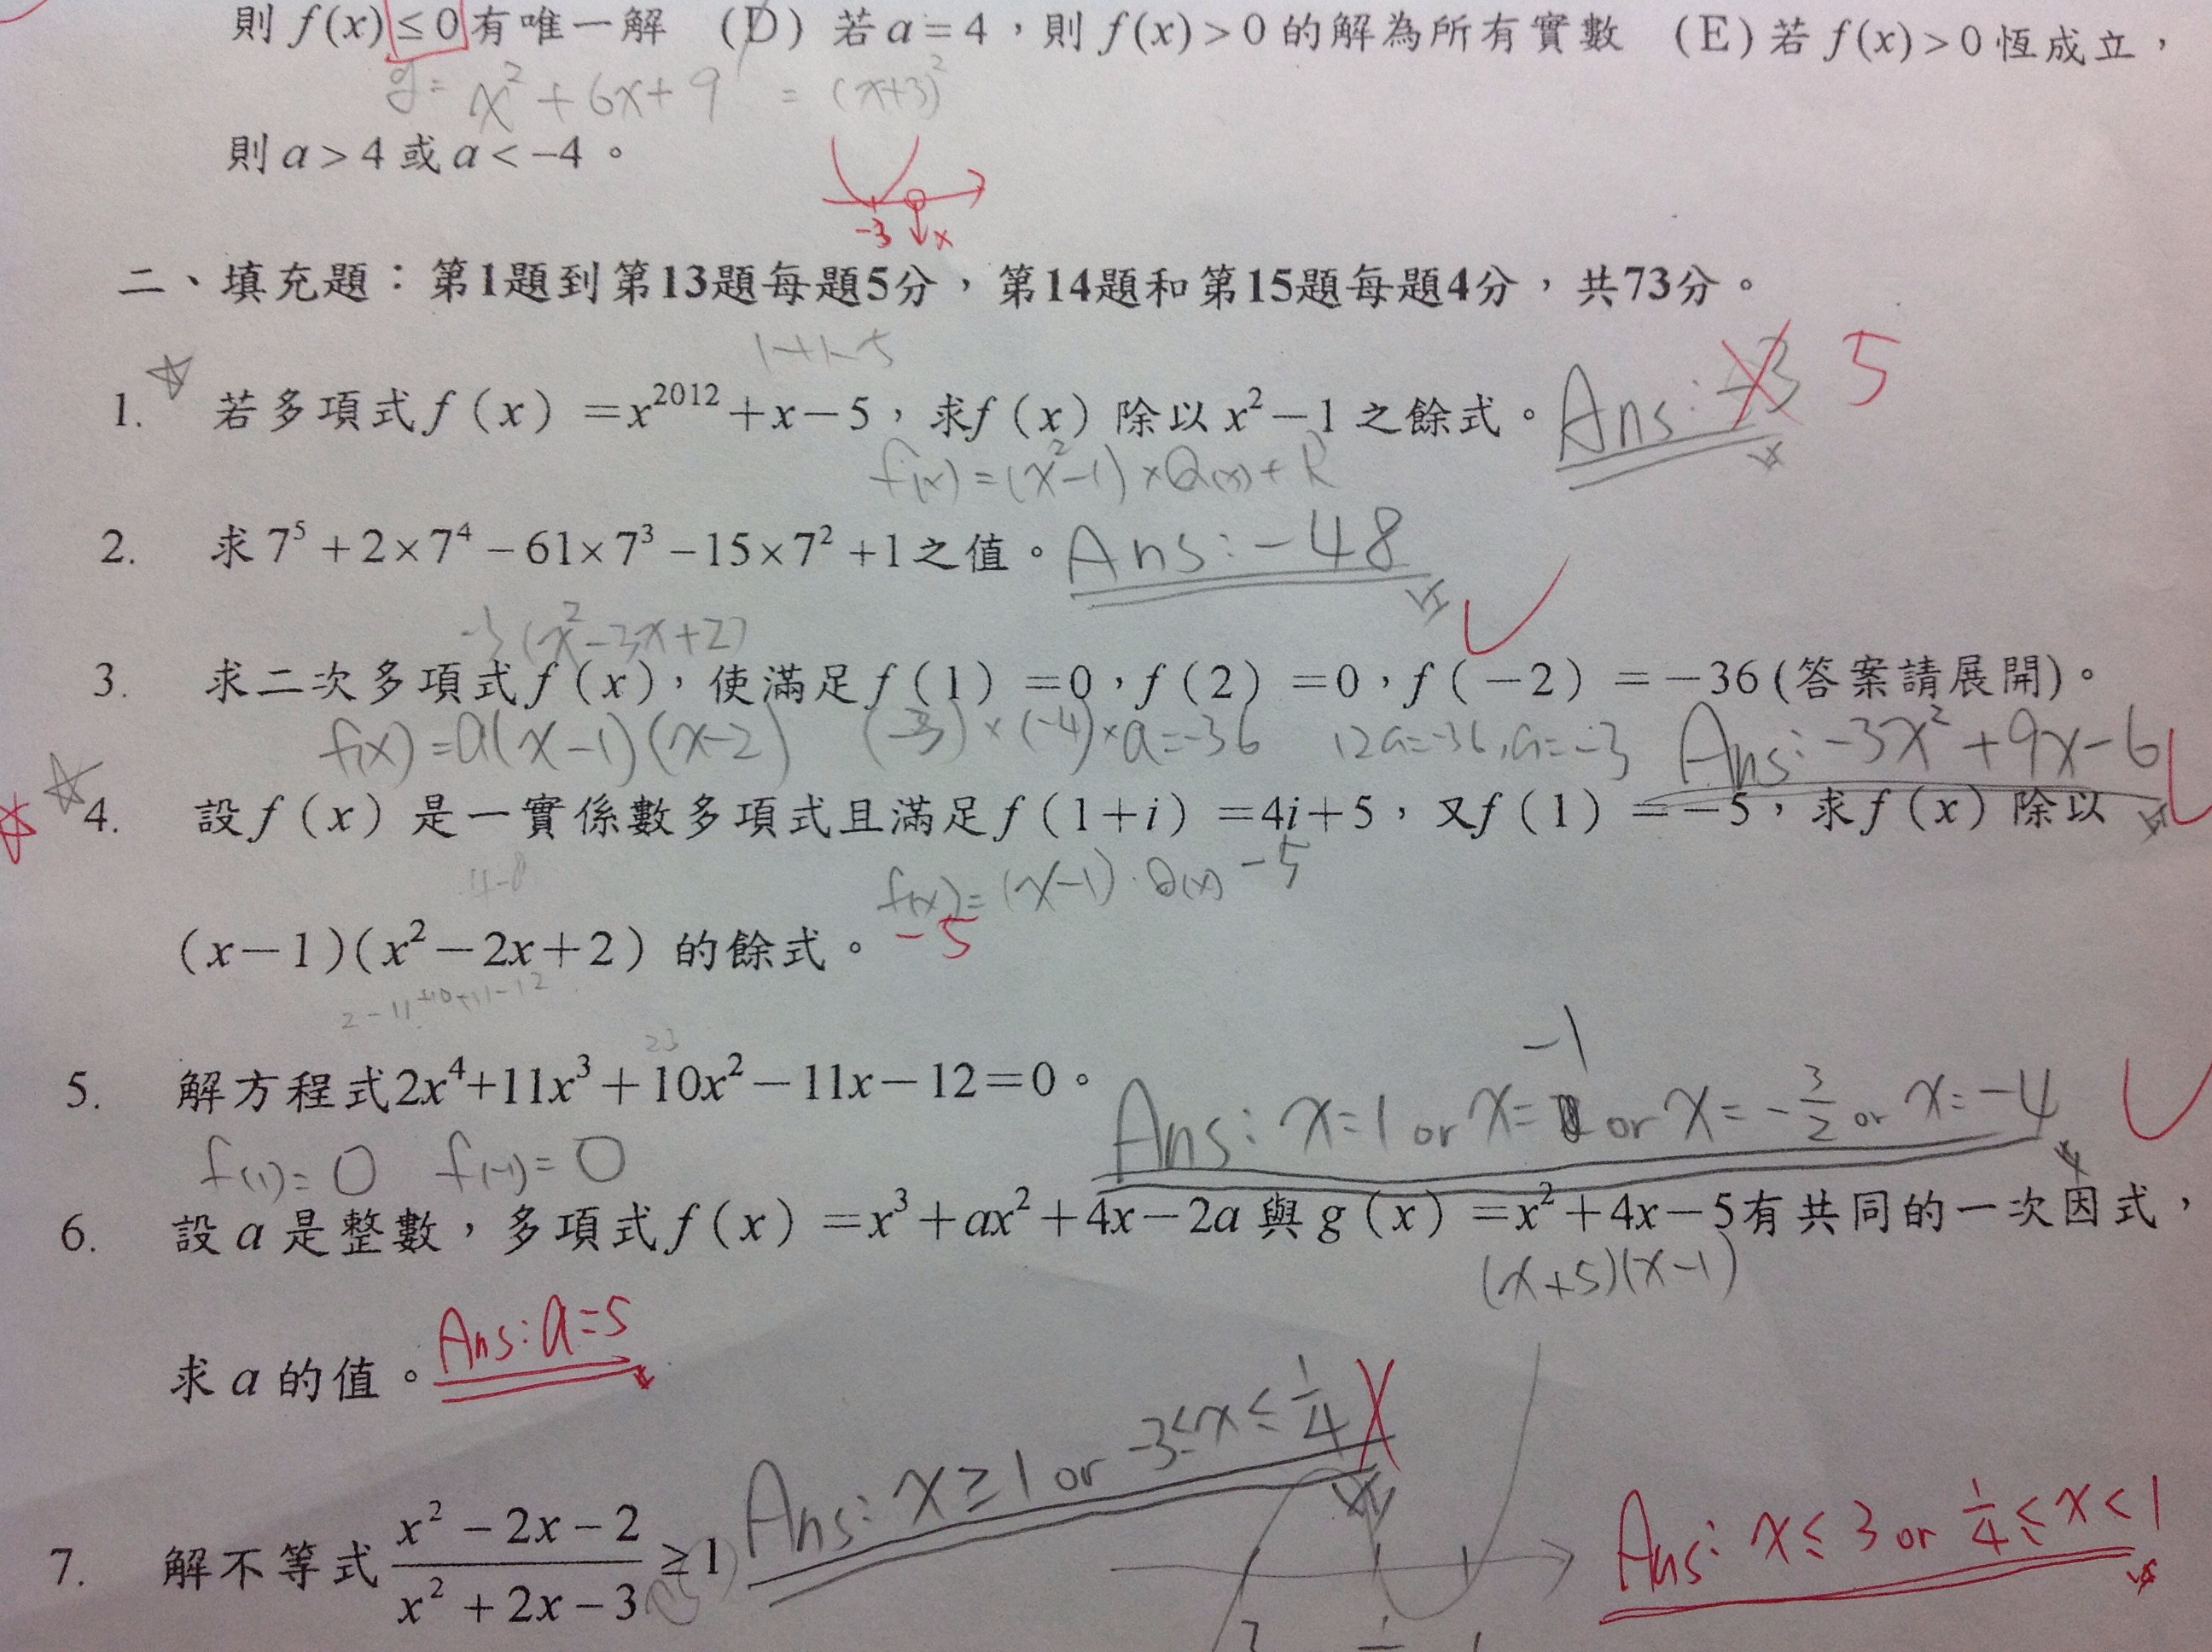 則 f(x) ≤ 0 有唯一解 (D) 若 a = 4，則 f(x) > 0 的解為所有實數 (E) 若 f(x) > 0 恆成立，
y = x² + 6x + 9 = (x+3)²
則 a > 4 或 a < −4。
-3 x
二、填充題：第1題到第13題每題5分，第14題和第15題每題4分，共73分。
1+1-5
1. 若多項式 f（x）＝x²⁰¹²＋x－5，求f（x）除以 x²－1 之餘式。Ans: -3 5
f(x) = (x²-1)×Q(x)+R
2. 求 7⁵ + 2×7⁴ − 61×7³ − 15×7² + 1 之值。Ans: -48
-3(x²-3x+2)
3. 求二次多項式 f（x），使滿足 f（1）＝0，f（2）＝0，f（－2）＝－36 (答案請展開)。
f(x) = a(x-1)(x-2) (-3)×(-4)×a=-36 12a=-36, a=-3 Ans: -3x²+9x-6
4. 設 f（x）是一實係數多項式且滿足 f（1+i）＝4i+5，又f（1）＝－5，求 f（x）除以
f(x) = (x-1)·Q(x) -5
（x－1）（x²－2x＋2）的餘式。 -5
2-11+10+11-12
23
-1
5. 解方程式2x⁴+11x³＋10x²－11x－12＝0。
Ans: x=1 or x= or x=-3/2 or x=-4
f(1)=0 f(-1)=0
6. 設 a 是整數，多項式 f（x）＝x³＋ax²＋4x－2a 與 g（x）＝x²＋4x－5有共同的一次因式，
(x+5)(x-1)
求 a 的值。Ans: a=5
7. 解不等式 (x² − 2x − 2)/(x² + 2x − 3) ≥ 1 Ans: x≥1 or -3≤x≤1/4
Ans: x≤3 or 1/4≤x<1